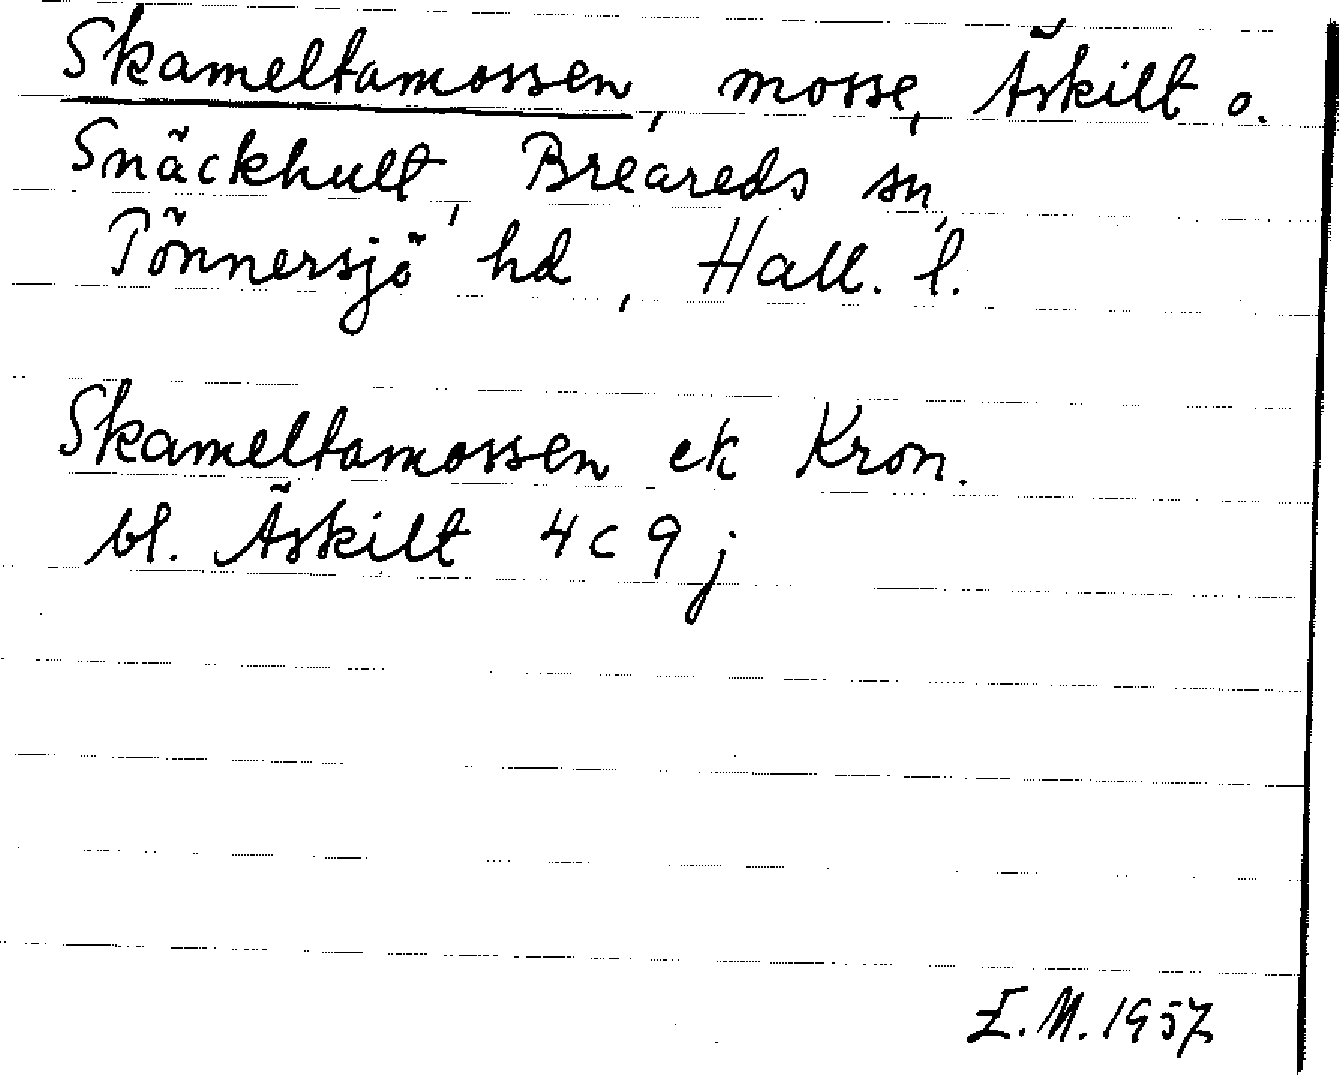 Skameltamossen, mosse, Äskilt o.
Snäckhult, Breareds sn,
Tönnersjö hd, Hall. l.
Skameltamossen ek Kron.
bl. Äskilt 4c 9j
E.M. 1957